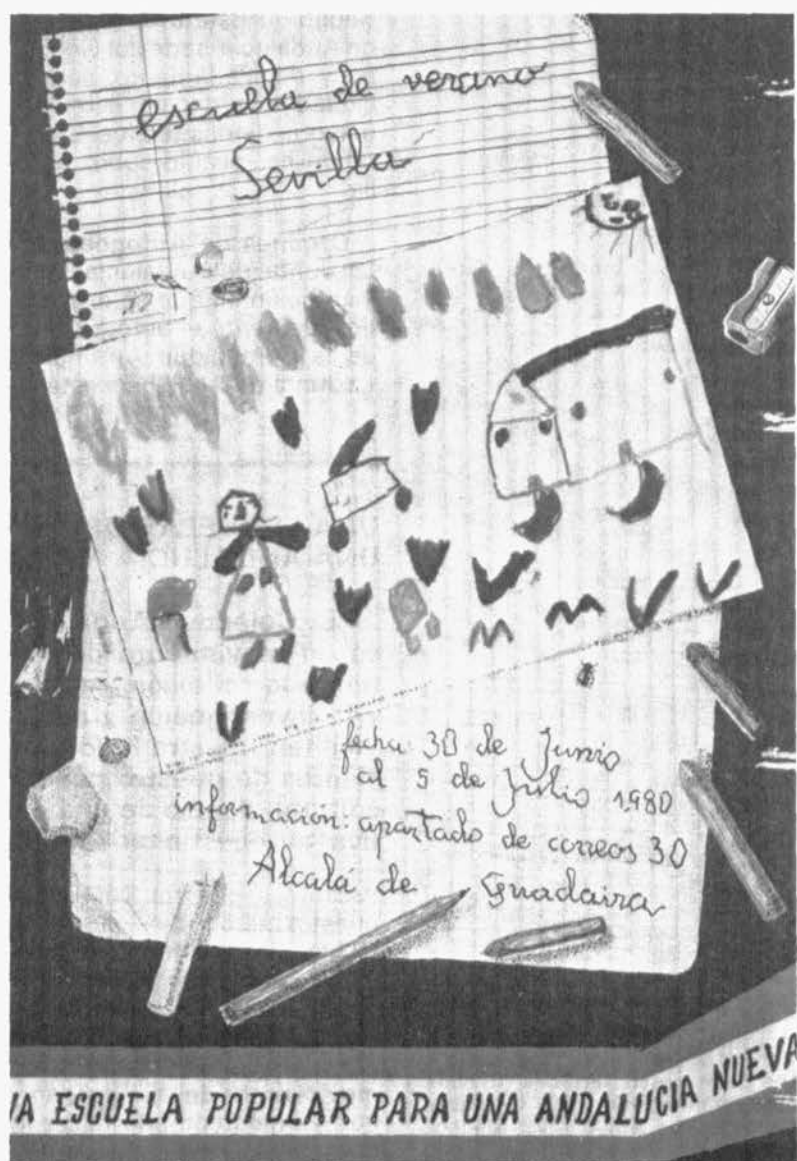 escuela de verano
Sevilla
fecha: 30 de Junio
al 5 de Julio 1980
información: apartado de correos 30
Alcalá de Guadaira
A ESCUELA POPULAR PARA UNA ANDALUCIA NUEVA